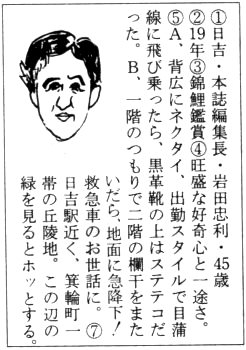 ①日吉・本誌編集長・岩田忠利・45歳
②19年③錦鯉鑑賞④旺盛な好奇心と一途さ。
⑤A、背広にネクタイ、出勤スタイルで目蒲
線に飛び乗ったら、黒革靴の上はステテコだ
った。B、一階のつもりで二階の欄干をまた
いだら、地面に急降下！
救急車のお世話に。⑦
日吉駅近く、箕輪町一
帯の丘陵地。この辺の
緑を見るとホッとする。